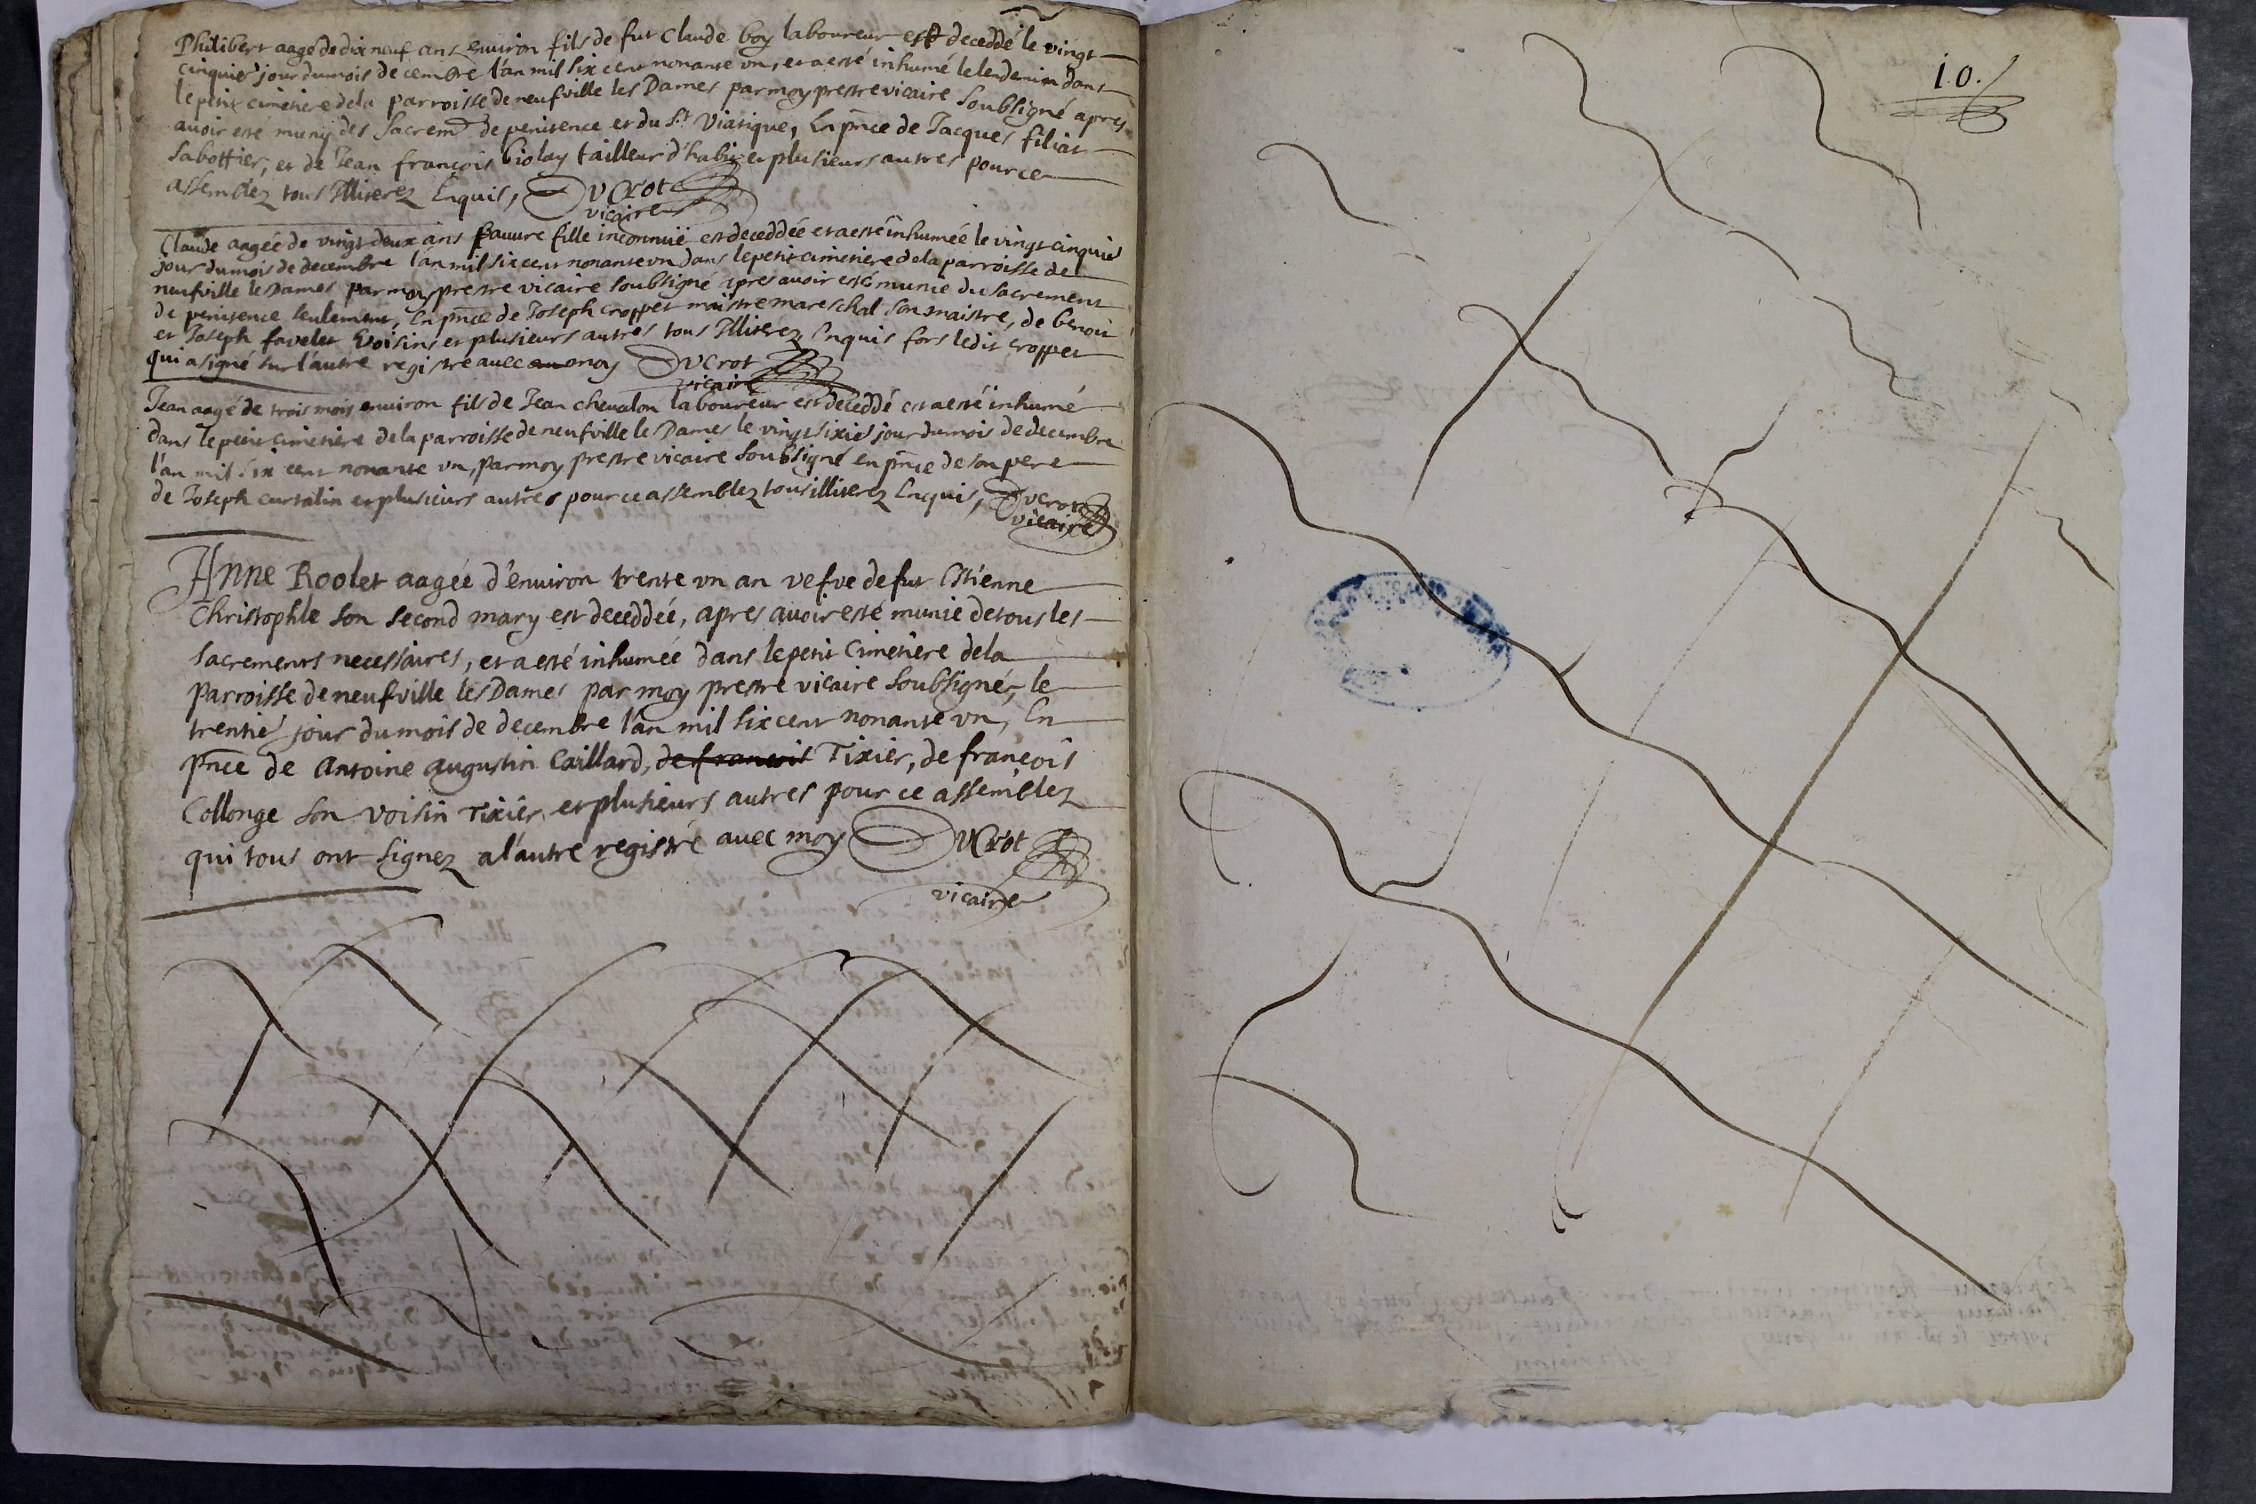 Philibert aagé de dix neuf ans environ fils de fut Claude boy laboureur est deceddé le vingt
cinquie jour du mois decembre l'an mil six cent nonante un, et a esté inhumé le lendemin dans
le petit cimetiere de la parroisse de neufville les Dames par moy prestre vicaire soubsigné apres
avoir esté muny des sacremts de penitence et du St Viatique, En pnce de Jacques filiat
sabottier, et de Jean françois biolay tailleur d'habit et plusieurs autres pour ce
assemblez tous Illiterez Enquis, Ducrot
vicaire
Claude aagée de vingt deux ans pauvre fille inconnuë est deceddée et a esté inhumée le vingt cinquie
jour du mois de decembre l'an mil six cent nonante un dans le petit cimetiere de la parroisse de
neufville les Dames par moy prestre vicaire soubsigné apres avoir esté munie du sacrement
de penitence seulement, En pnce de Joseph croppet maistre mareschal son maistre, de benoit
et Joseph favelet Voisins et plusieurs autres tous Illiterez Enquis fors ledit croppet
qui a signé sur l'autre registre avec moy Ducrot
vicaire
Jean aagé de trois mois environ fils de Jean chevalon laboureur est deceddé et a esté inhumé
dans le petit cimetiere de la parroisse de neufville les Dames le vingt sixie jour du mois de decembre
l'an mil six cent nonante un, par moy prestre vicaire soubsigné en pnce de son pere
de Joseph curtalin et plusieurs autres pour ce assemblez tous illiterez Enquis, Ducrot
vicaire
Anne Rolet aagée d'environ trente un an vefve de fut Estienne
Christophle son second mary est deceddée, apres avoir esté munie de tous les
sacrements necessaires, et a esté inhumée dans le petit Cimetiere de la
parroisse de neufville les Dames par moy prestre vicaire soubsigné, le
trentie jour du mois de decembre l'an mil six cent nonante un, En
pnce de Antoine augustin Caillard, de francois Tixier, de françois
Collonge son voisin Tixier, et plusieurs autres pour ce assemblez
qui tous ont signez a l'autre registre avec moy Ducrot
vicaire
10.